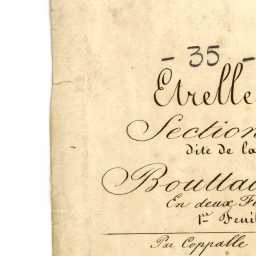 - 35 -
Etrelle
Section
dite de la
Boulla
En deux F
1re Feuil
Par Coppalle